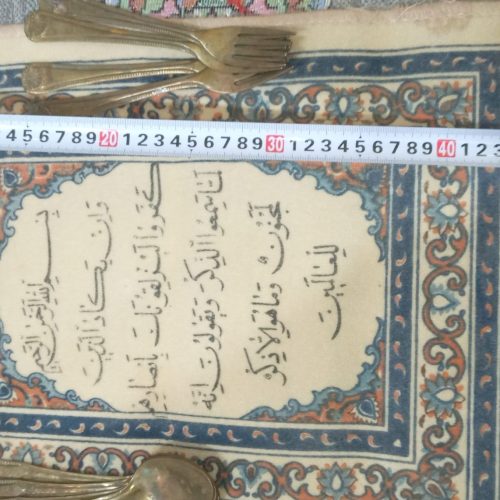 4 5 6 7 8 9 20 1 2 3 4 5 6 7 8 9 30 1 2 3 4 5 6 7 8 9 40 1 2 3
بسم الله الرحمن الرحيم
وان يكاد الذين
كفروا ليزلقونك بابصارهم
لما سمعوا الذكر ويقولون انه
لمجنون وما هو الا ذكر
للعالمين